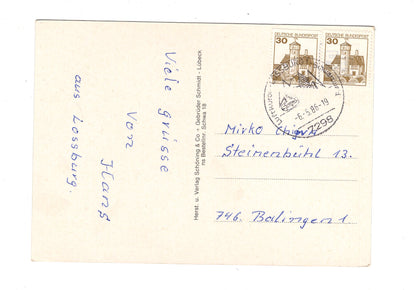 Viele grüsse
Von
Hans
aus Lossburg.
Herst. u. Verlag Schöning & Co + Gebrüder Schmidt - Lübeck
Bestellnr. Schwa 18
30
30
DEUTSCHE BUNDESPOST
DEUTSCHE BUNDESPOST
-6.5.86-19
7298
Mirko
Steinenbühl 13.
746. Balingen 1